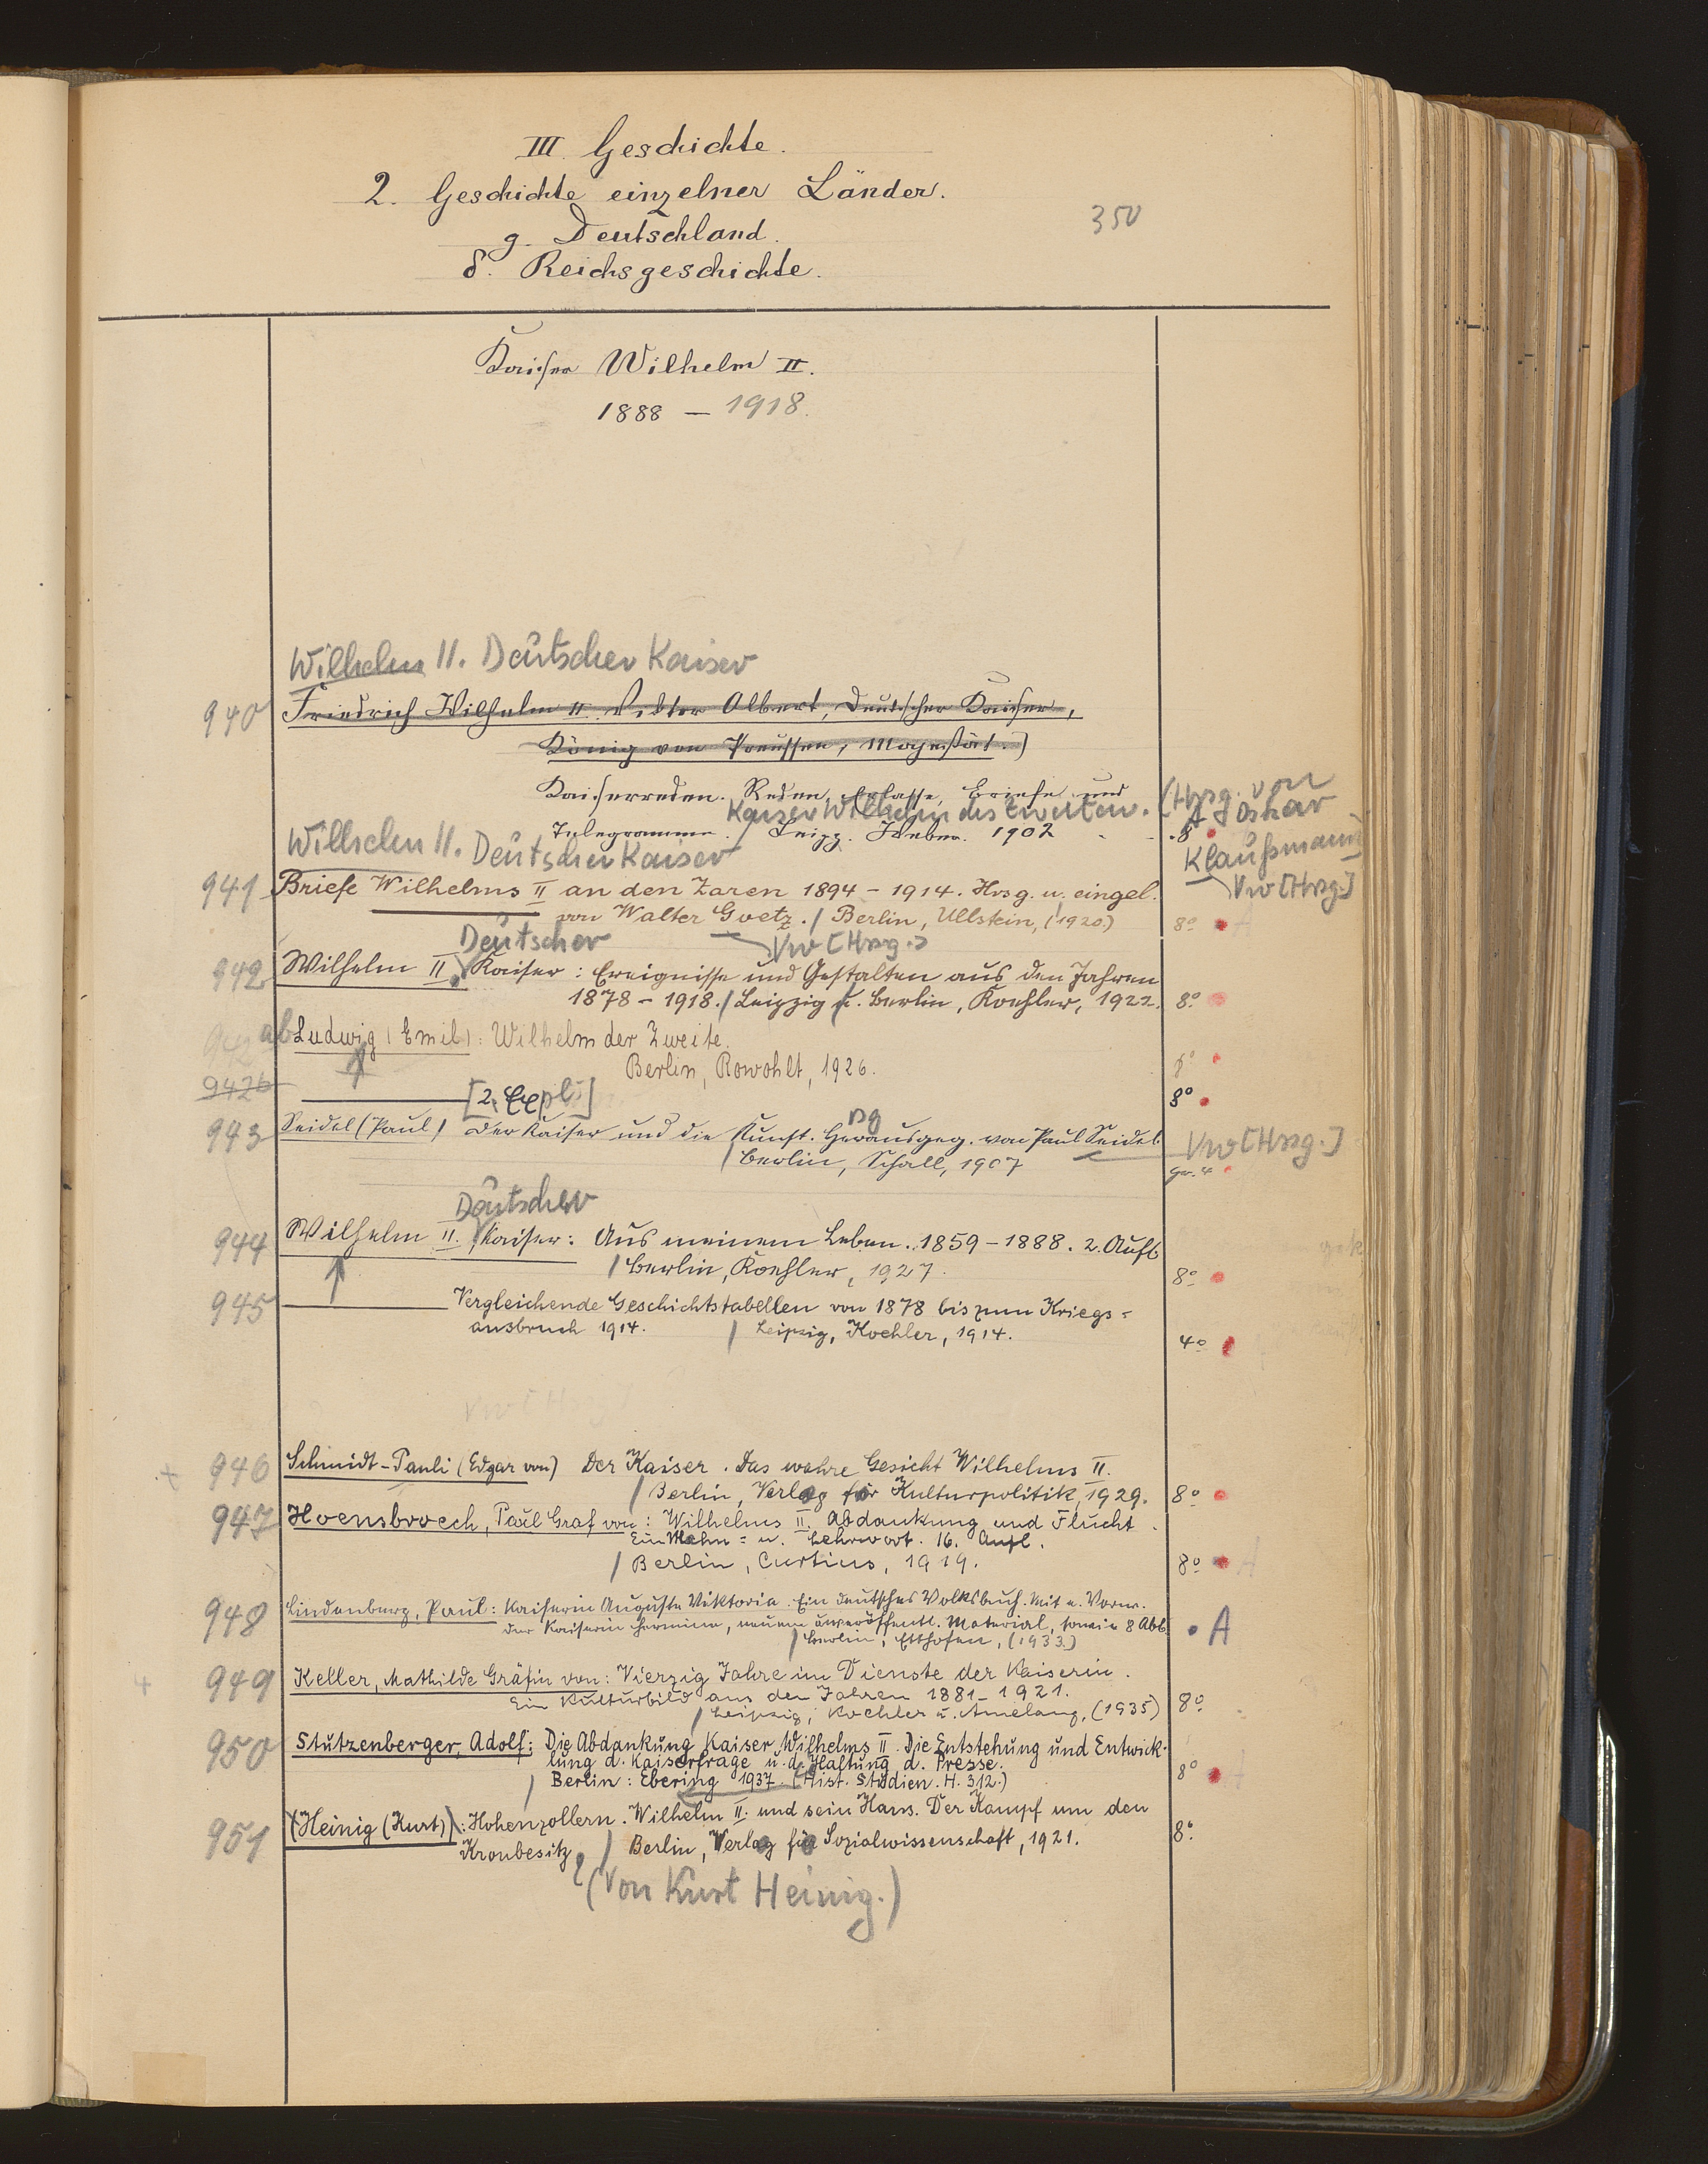 III. Geschichte.
2. Geschichte einzelner Länder.
350
g. Deutschland.
δ. Reichsgeschichte.
Kaiser Wilhelm II.
1888 – 1918.
Wilhelm II. Deutscher Kaiser
940 Friedrich Wilhelm II Viktor Albert, Deutscher Kaiser,
König von Preussen, Majestät.)
Kaiserreden. Reden, Erlasse, Briefe und
Kaiser Wilhelm des Zweiten. (Hrsg. von
Telegramme / Leipz. Weber. 1902 8° A Oskar
Klaußmann)
Vw [Hrsg.]
Wilhelm II. Deutscher Kaiser
941 Briefe Wilhelms II an den Zaren 1894 – 1914. Hrsg. u. eingel.
von Walter Goetz. / Berlin, Ullstein, (1920.) 8° A
Vw [Hrsg.]
Deutscher
942 Wilhelm II, Kaiser: Ereignisse und Gestalten aus den Jahren
1878 – 1918. / Leipzig u. Berlin, Koehler, 1922. 8°
942 ab Ludwig (Emil): Wilhelm der Zweite.
Berlin, Rowohlt, 1926. 8°
942b [2. Expl.] 8°
943 Seidel (Paul) Der Kaiser und die Kunst. Herausgeg. von Paul Seidel. Vw [Hrsg.]
sg
/ Berlin, Schall, 1907 gr. 4°
Deutscher
944 Wilhelm II. Kaiser: Aus meinem Leben. 1859 – 1888. 2. Aufl.
/ Berlin, Koehler, 1927. 8°
945 Vergleichende Geschichtstabellen von 1878 bis zum Kriegs=
ausbruch 1914. / Leipzig, Koehler, 1914. 4°
Vw [Hrsg.]
+ 946 Schmidt-Pauli (Edgar von) Der Kaiser. Das wahre Gesicht Wilhelms II.
/ Berlin, Verlag für Kulturpolitik, 1929. 8°
947 Hoensbroech, Paul Graf von: Wilhelms II. Abdankung und Flucht.
Ein Mahn= u. Lehrwort. 16. Aufl.
/ Berlin, Curtius, 1919. 8° A
948 Lindenberg, Paul: Kaiserin Auguste Viktoria. Ein deutsches Volksbuch. Mit e. Vorw.
der Kaiserin Hermine, neuem unveröffentl. Material, sowie 8 Abb. A
/ Berlin, Etthofen, (1933.)
+ 949 Keller, Mathilde Gräfin von: Vierzig Jahre im Dienste der Kaiserin.
Ein Kulturbild aus den Jahren 1881 – 1921.
/ Leipzig, Koehler u. Amelang, (1935) 8°
950 Stutzenberger, Adolf: Die Abdankung Kaiser Wilhelms II. Die Entstehung und Entwick-
lung d. Kaiserfrage u. d. Haltung d. Presse.
/ Berlin: Ebering 1937. (Hist. Studien. H. 312.) 8° A
951 (Heinig (Kurt)): Hohenzollern. Wilhelm II. und sein Haus. Der Kampf um den
Kronbesitz, / Berlin, Verlag für Sozialwissenschaft, 1921. 8°
(Von Kurt Heinig.)